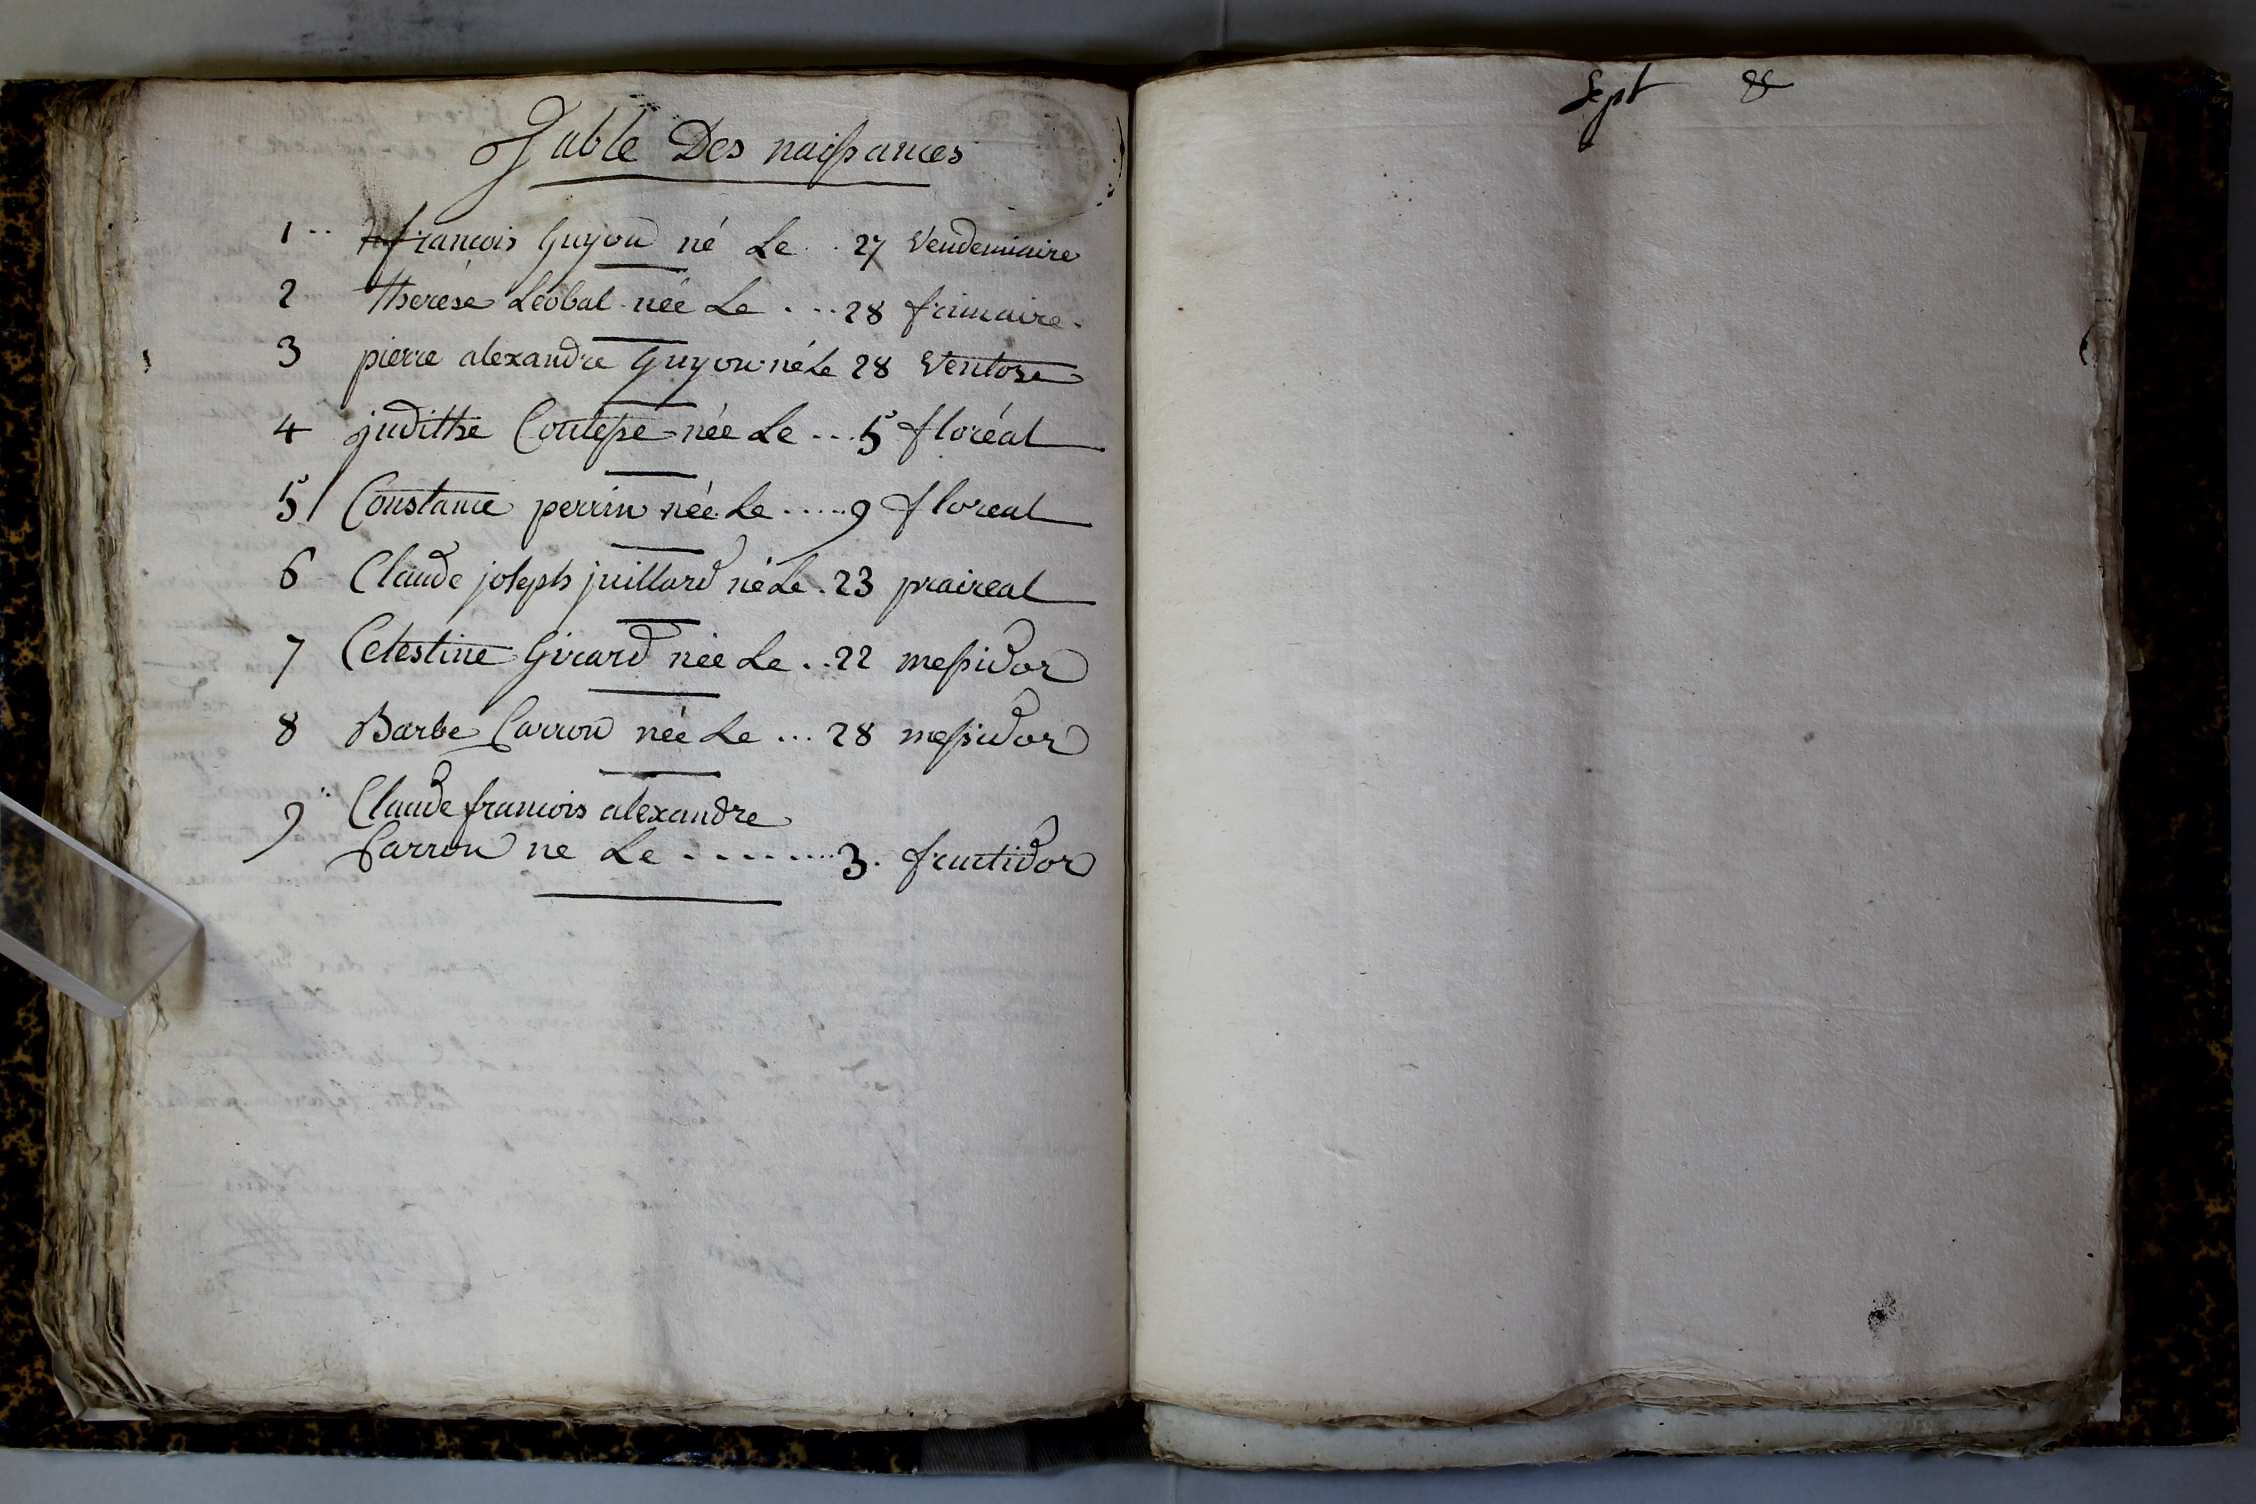 Table Des naissances
1 françois Guyon né Le 27 Vendemiaire
2 therése Léobal née Le ... 28 frimaire
3 pierre alexandre Guyon né Le 28 Ventose
4 judithe née Le ... 5 floréal
5 Constance perrin née Le ..... 9 floreal
6 Claude joseph juillard né Le . 23 praireal
7 Celestine Girard née Le .. 22 messidor
8 Barbe Carron née Le ... 28 messidor
9 Claude francois alexandre
Carron ne Le ......... 3. fructidor
Sept